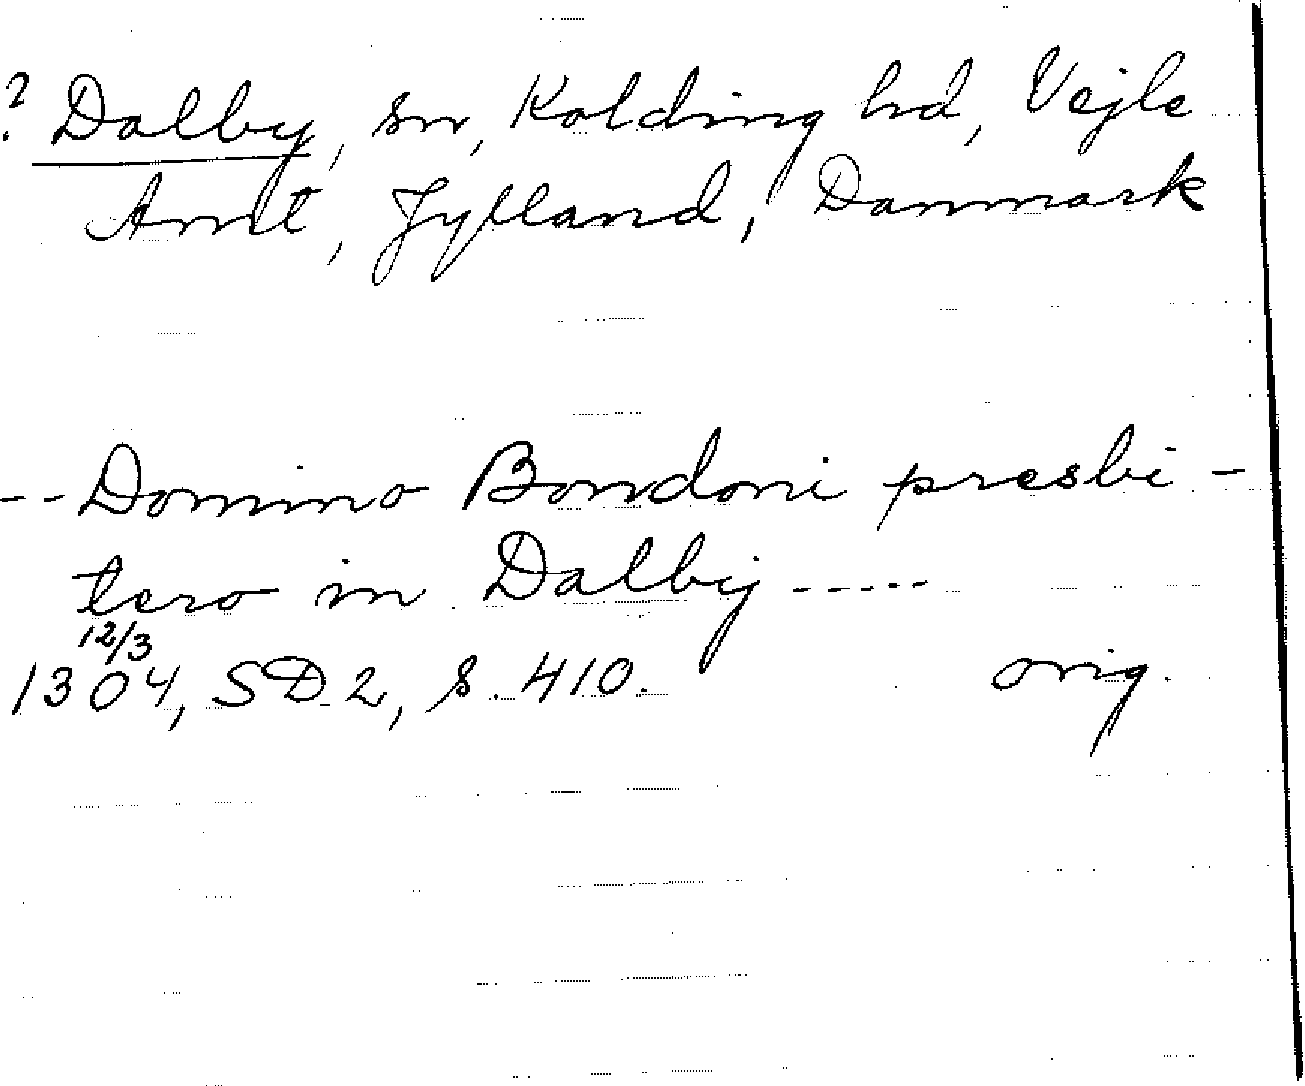 ? Dalby, sn, Kolding hd, Vejle
Amt, Jylland, Danmark
-- Domino Bondoni presbi-
tero in Dalby -----
12/3
1304, SD 2, s. 410. orig.